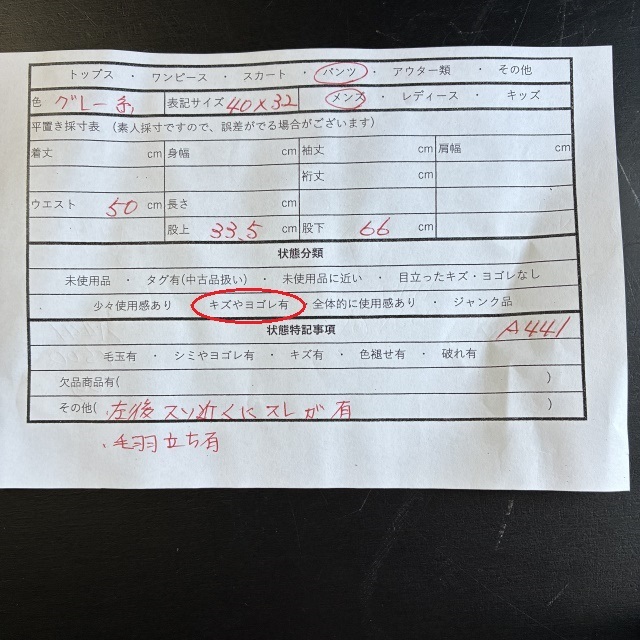 トップス ・ ワンピース ・ スカート ・ パンツ ・ アウター類 ・ その他
色 グレー系 表記サイズ 40×32 メンズ ・ レディース ・ キッズ
平置き採寸表 (素人採寸ですので、誤差がでる場合がございます)
着丈 cm 身幅 cm 袖丈 cm 肩幅 cm
裄丈 cm
ウエスト 50 cm 長さ cm
股上 33.5 cm 股下 66 cm
状態分類
未使用品 ・ タグ有(中古品扱い) ・ 未使用品に近い ・ 目立ったキズ・ヨゴレなし
少々使用感あり キズやヨゴレ有 全体的に使用感あり ・ ジャンク品
状態特記事項 A441
毛玉有 ・ シミやヨゴレ有 ・ キズ有 ・ 色褪せ有 ・ 破れ有
欠品商品有( )
その他( ・左後スソ近くにスレが有 )
・毛羽立ち有